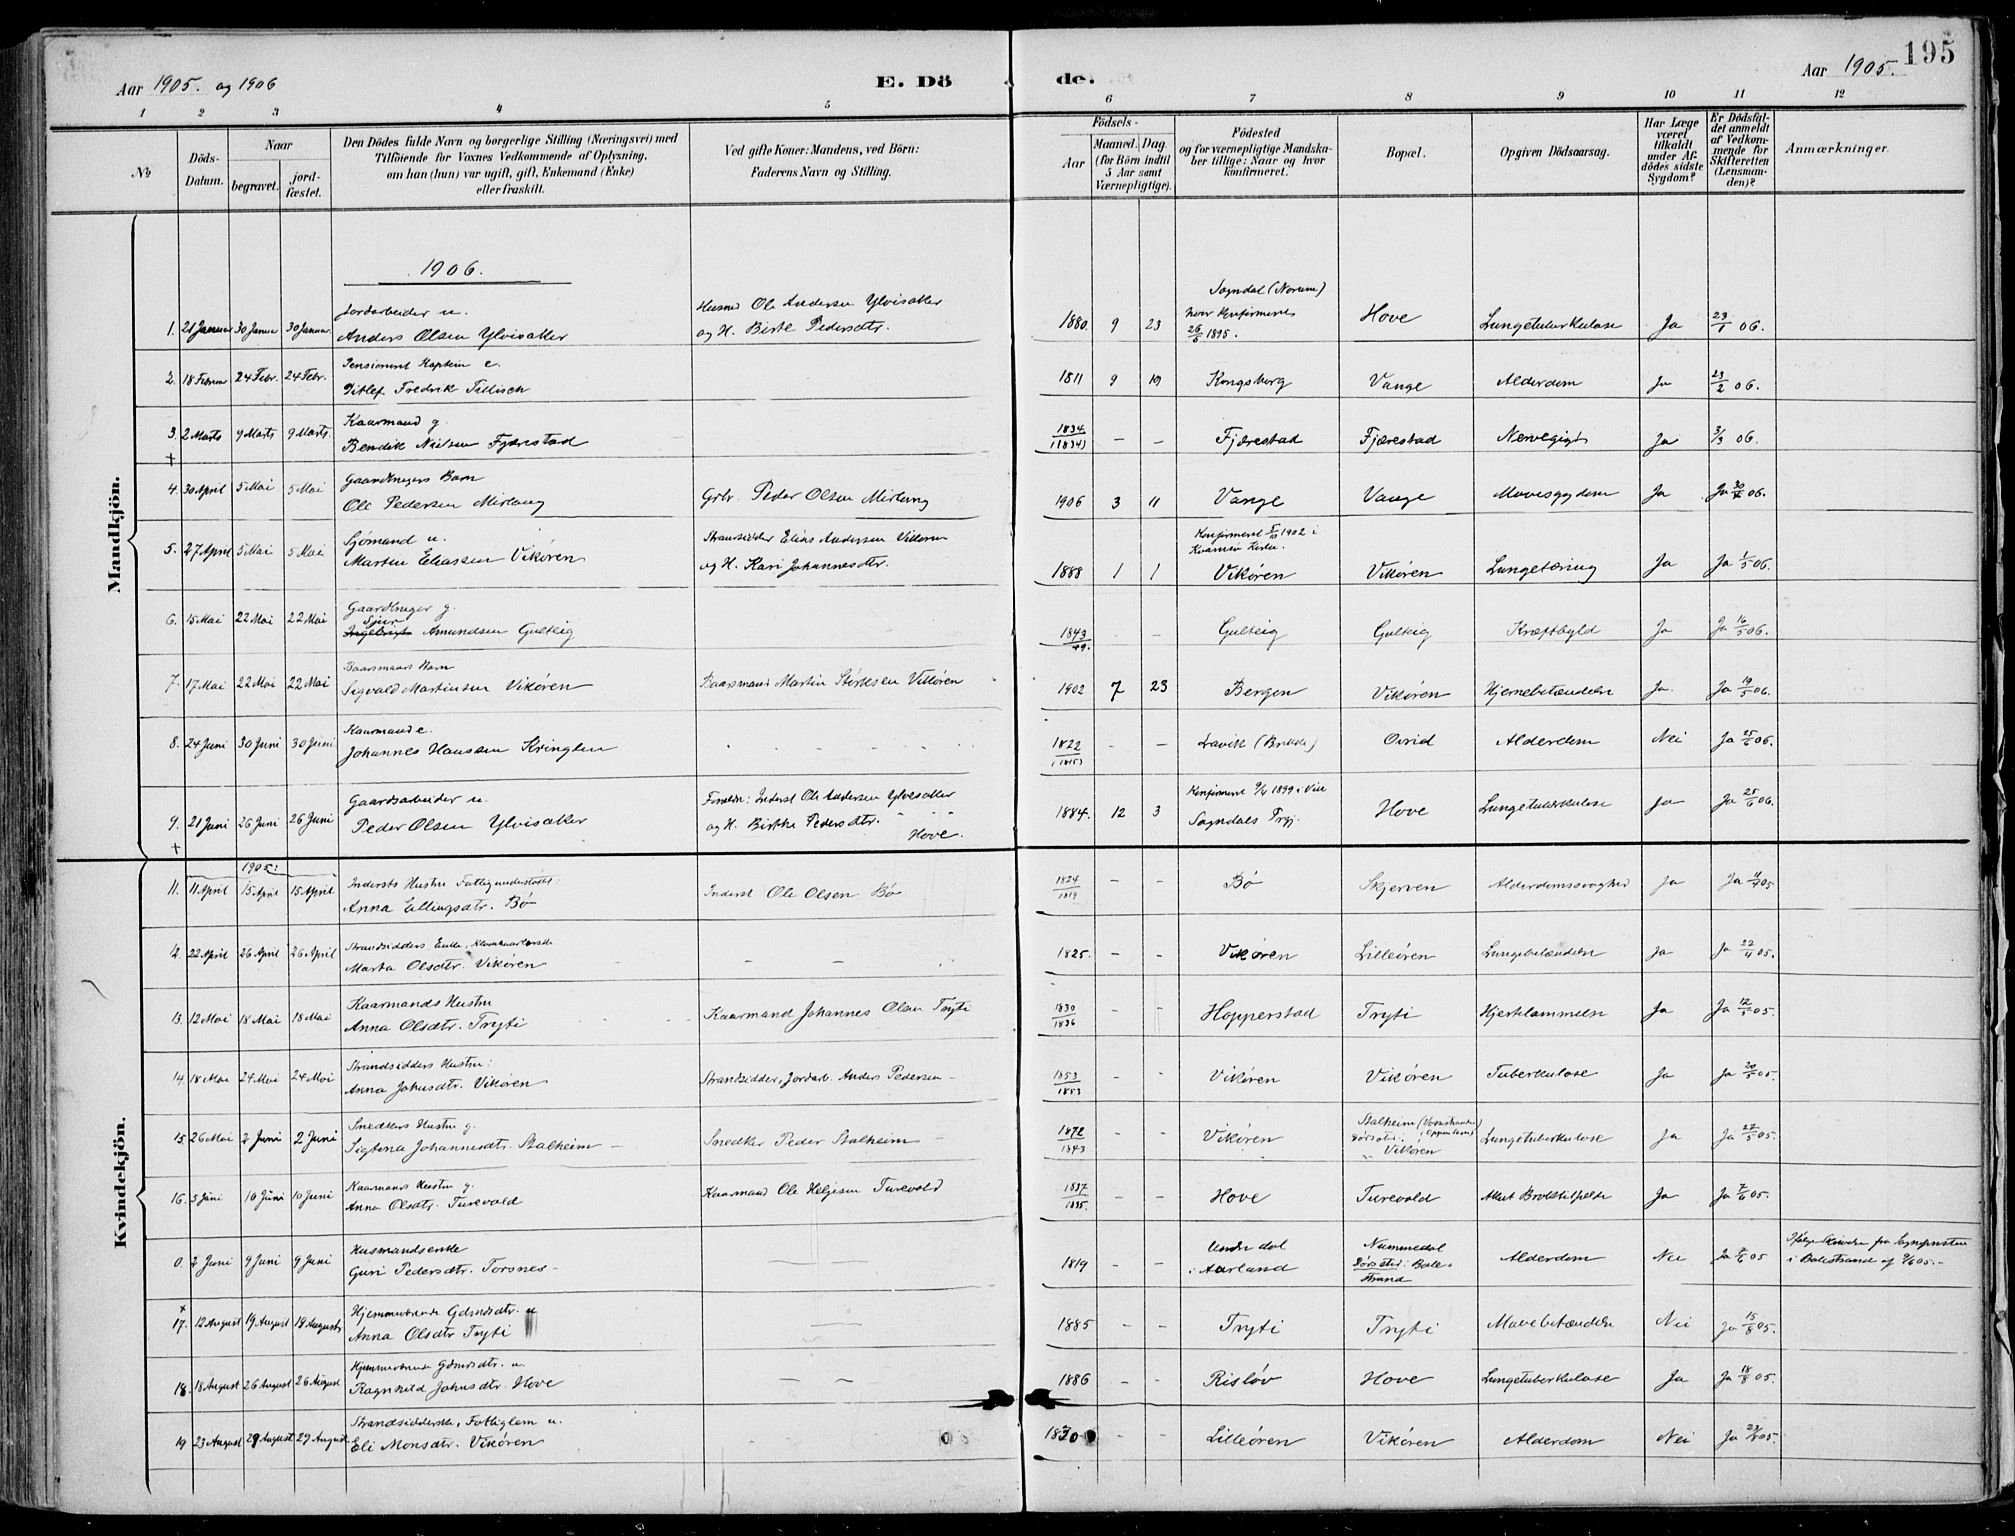 195
Aar 1905. og 1906
E. Dö
de.
Aar 1905.
1 2 3 4 5 6 7 8 9 10 11 12
No
Döds-Datum.
Naar
begravet.
jord-fæstet.
Den Dödes fulde Navn og borgerlige Stilling (Næringsvei) med
Tilföiende for Voxnes Vedkommende af Oplysning,
om han (hun) var ugift, gift, Enkemand (Enke)
eller fraskilt.
Ved gifte Koner: Mandens, ved Börn:
Faderens Navn og Stilling.
Födsels-
Aar
Maaned. Dag.
(for Börn indtil
5 Aar samt
Værnepligtige).
Födested
og for værnepligtige Mandska-
ber tillige: Naar og hvor
konfirmeret.
Bopæl.
Opgiven Dödsaarsag.
Har Læge
været
tilkaldt
under Af-
dödes sidste
Sygdom?
Er Dödsfal-
det anmeldt
af Vedkom-
mende for
Skifteretten
(Lensman-
den)?
Anmærkninger.
Mandkjön.
1906.
Jordarbeider u. Husmd Ole Andersen Ylvisaker Sogndal (Norum)
1. 21 Januar 30 Januar 30 Januar Anders Olsen Ylvisaker og H. Birte Pedersdtr. 1880. 9 23 hvor Konfirmeret 1895. Hove Lungetuberkulose Ja 23/1 06.
Pensioneret Kaptein e.
2. 18 Februar 24 Febr. 24 Febr. Ditlef Fredrik Tillisch 1811 9 19 Kongsberg Vange Alderdom Ja 23/2 06.
Kaarmand g.
3. 2 Marts 9 Marts 9 Marts Bendik Nielsen Fjærestad 1834 (1834) - - Fjærestad Fjærestad Nervegigt Ja 3/3 06.
Gaardbrugers Barn
4. 30 April 5 Mai 5 Mai Ole Pedersen Mirlaug Grbr. Peder Olsen Mirlaug 1906 3 11 Vange Vange Mavesygdom Ja Ja 30/4 06.
Sjømand u. Strandsidder Elias Andersen Vikøren Konfirmeret 1902 i
5. 27 April 5 Mai 5 Mai Martin Eliassen Vikøren og H. Kari Johannesdtr. 1888 1 1 Vikøren Vikøren Lungetæring Ja Ja 1/5 06.
Gaardbruger g.
Sjur
6. 15 Mai 22 Mai 22 Mai Amundsen Gulteig 1843/49. - - Gulteig Gulteig Kræftbyld Ja Ja 16/5 06.
Baarsmans Barn
7. 17 Mai 22 Mai 22 Mai Sigvald Martinsen Vikøren Baarsmand Martin Størksen Vikøren 1902 7 23 Bergen Vikøren Hjernebetændelse Ja. Ja 19/5 06.
Kaarmand e.
8. 24 Juni 30 Juni 30 Juni Johannes Hanssen Kringlen 1822 (1815) - - Lavik (Brekke) Ovrid Alderdom Nei Ja 25/6 06.
Gaardsarbeider u. Foreldre: Inderst Ole Andersen Ylvisaker Konfirmeret 1899 i
9. 21 Juni 26 Juni 26 Juni Peder Olsen Ylvisaker og H. Birthe Pedersdtr. Hove. 1884. 12 3 Sogndals Prgj. Hove Lungetuberkulose Ja Ja 25/6 06.
Kvindekjön.
1905:
Indersts Hustru Fattigunderstøttet:
11. 11 April 15 April 15 April Anna Ellingsdtr. Bø Inderst Ole Olsen Bø 1824/1819 - - Bø Skjerven Alderdomssvaghed Ja Ja 11/4 05
Strandsidders Enke,
2. 22 April 26 April 26 April Marta Olsdtr. Vikøren - - 1825. - - Vikøren Lilleøren Lungebetændelse Ja Ja 22/4 05.
Kaarmands Hustru
13. 12 Mai 18 Mai 18 Mai Anna Olsdtr. Tryti Kaarmand Johannes Olsen Tryti 1830/1836 - - Hopperstad Tryti Hjertelammelse Ja Ja 12/5 05.
Strandsidders Hustru:
14. 18 Mai 24 Mai 24 Mai Anna Johnsdtr. Vikøren Strandsidder, Jordarb. Anders Pedersen 1853/1853 - - Vikøren Vikøren Tuberkulose Ja Ja 20/5 05.
Snedkers Hustru g. Stalheim
15. 26 Mai 2 Juni 2 Juni Sigtena Johannesdtr. Stalheim Snedker Peder Stalheim 1872/1843 - - Vikøren Vikøren Lungetuberkulose Ja Ja 27/5 05.
Kaarmans Hustru g.
16. 5 Juni 10 Juni 10 Juni Anna Olsdtr. Turevold Kaarmand Ole Helgesen Turevold 1837/1835. - - Hove Turevold Akut Ja Ja 7/6 05.
Husmandsenke
0. 2 Juni 9 Juni 9 Juni Guri Pedersdtr. Torsnes 1819 Underdal i Aurland Nummedal Dørsted: Balestrand Alderdom Nei Ja 05 i Balestrand af
Hjemmeværende Gdmdsdtr. u
17. 12 August 19 August 18 August Anna Olsdtr Tryti 1885 - - Tryti Tryti Mavebetændelse Nei Ja 15/8 05.
Hjemmeværende Gdmdsdtr. u.
18. 18 August 26 August 26 August Ragnhild Johnsdtr. Hove - - 1886 - - Risløv Hove Lungetuberkulose Ja Ja 18/8 05.
Strandsidderske, Fattiglem u.
19 23 August 29 August 29 August Eli Monsdtr. Vikøren 1830 - - Lilleøren Vikøren Alderdom Nei Ja 05.